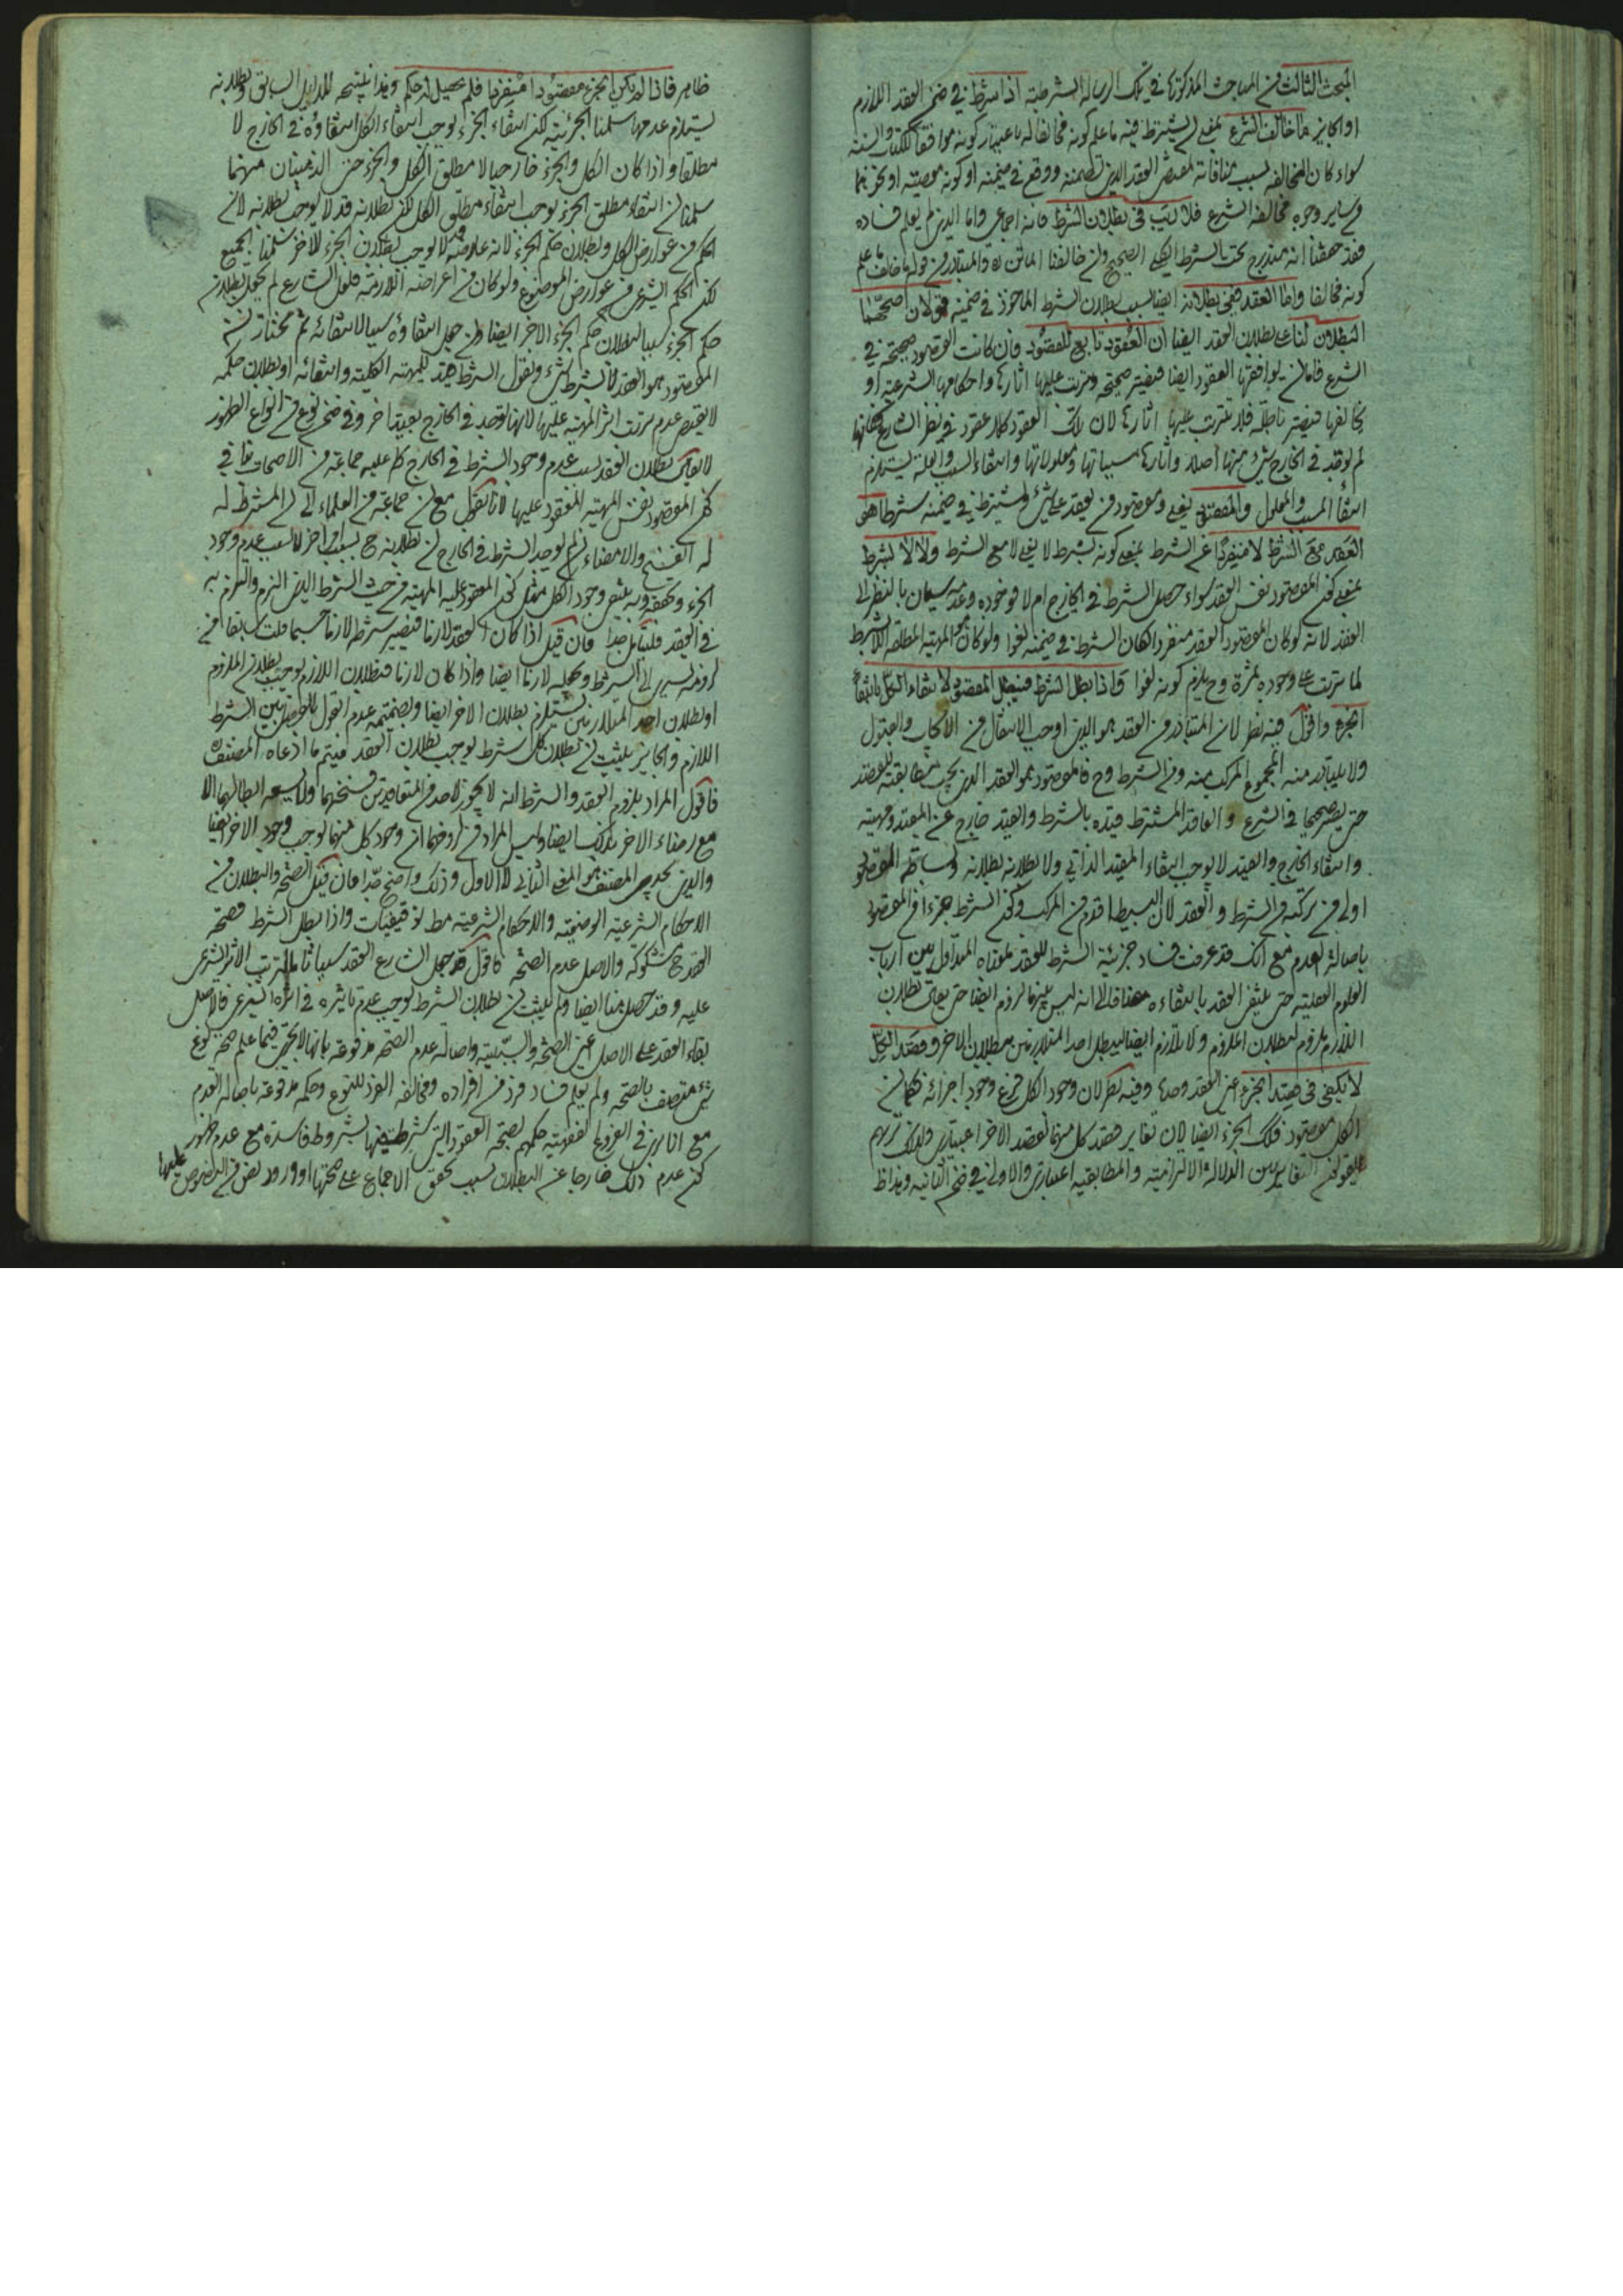 المبحث الثالث من المباحث المذكورة في تلك الرسالة الشرطية اذا شرط في ضمن العقد اللازم
او الجايز ما خالف الشرع بمعنى ان يشترط فيه ما علم كونه مخالفا له باعتبار كونه موافقا للكتاب والسنة
سواء كان المخالفة بسبب منافاته لمقتضى العقد الذى تضمنه ووقع في ضمنه او كونه معصية او نحوهما
من ساير وجوه مخالفة الشرع فلا ريب في بطلان الشرط فانه اجماعى واما الذى لم يعلم فساده
فقد حققنا انه مندرج تحت الشرط الصحيح وان خالفنا الماتن ره والمتبادر من قوله ما خالف ما علم
كونه مخالفا واما العقد ففى بطلانه ايضا بسبب بطلان الشرط الماخوذ في ضمنه قولان اصحهما
البطلان لنا على بطلان العقد ايضا ان العقود تابع للقصود فان كانت القصود صحيحة في
الشرع فاما ان يوافقها العقود ايضا فيصير صحيحة وترتب عليها اثارها واحكامها الشرعية او
يخالفها فيصير باطلة فلا يترتب عليها اثارها لان تلك العقود كلا عقود في نظر الشارع فكانها
لم يوجد في الخارج شىء منها اصلا واثارها مسبباتها ومعلولاتها وانتفاء السبب والعلة يستلزم
انتفاء المسبب والمعلول والمقصود فمن يعقد على شىء ويشترط في ضمنه شرطا هو
العقد مع الشرط لا منفردا عن الشرط بمعنى كونه بشرط لا يعنى لا مع الشرط ولا لا بشرط
بمعنى كون المقصود نفس العقد سواء حصل الشرط في الخارج ام لا فوجوده وعدمه سيان بالنظر الى
العقد لانه لو كان المقصود العقد منفردا لكان الشرط في ضمنه لغوا ولو كان هو المهية المطلقة اللابشرط
لما ترتب على وجوده ثمرة وح يلزم كونه لغوا فاذا بطل الشرط فيبطل المقصود لانتفاء الكل بانتفاء
الجزء واقول فيه نظر لان المتبادر من العقد هو الذى اوجب الانتقال من الايجاب والقبول
ولا يتبادر منه المجموع المركب منه ومن الشرط وح فالمقصود هو العقد الذى يجب مطابقته للقصد
حتى يصير صحيحا في الشرع والعاقد المشترط قيده بالشرط والقيد خارج عن المقيد ومهيته
وانتفاء الخارج والقيد لا يوجب انتفاء المقيد الذاتي ولا بطلانه بطلانه وبساطة المقصود
اولى من تركبه من الشرط والعقد لان البسيط اقدم من المركب وكون الشرط جزءا من المقصود
باصالة العدم مع انك قد عرفت فساد جزئية الشرط للعقد بمعناه المتداول بين ارباب
العلوم العقلية حتى ينتفى العقد بانتفاءه
اللازم ملزوم لبطلان الملزوم ولا تلازم ايضا ليبطل احد المتلازمين ببطلان الاخر وقصد الكل
لا يكفى في قصد الجزء اعنى العقد وحده وفيه نظر لان وجود الكل فرع وجود اجزائه فكما ان
الكل مقصود فكذلك الجزء ايضا لان تغاير قصد كل منهما لقصد الاخر اعتبارى ولذلك تريهم
يقولون التغاير بين الدلالة الالتزامية والمطابقية اعتبارى والاولى في ضمن الثانية وهذا ظ
ظاهر فاذا لم يكن الجزء مقصودا منفردا فلم يحصل له حكم وهذا نتيجة للدليل السابق وبطلانه
يستلزم عدمها سلمنا الجزئية لكن انتفاء الجزء يوجب انتفاء الكل انتفاؤه في الخارج لا
مطلقا واذا كان الكل والجزء خارجيا لا مطلق الكل والجزء حتى الذهنيان منهما
سلمنا ان انتفاء مطلق الجزء يوجب انتفاء مطلق الكل لكن بطلانه قد لا يوجب بطلانه لان
الحكم من عوارض الكل وبطلان حكم الجزء لانه عارضه لا يوجب بطلان الجزء الاخر سلمنا الجميع
لكن الحكم الشرعى من عوارض الموضوع ولو كان من اعراضه اللازمة فلعل الشارع لم يجعل بطلان
حكم الجزء سببا لبطلان حكم الجزء الاخر ايضا وان جعل انتفاؤه سببا لانتفائه ثم نختار ان
المقصود هو العقد لا بشرط شىء ونقول الشرط قيد للمهية الكلية وانتفائه او بطلان حكمه
لا يقتضى عدم ترتب اثر المهية عليها لانها توجد في الخارج بقيد اخر وفى ضمن نوع من انواع الظهور
لا يقال بطلان العقد بسبب عدم وجود الشرط في الخارج كما عليه جماعة من الاصحاب ينافى
كون المقصود نفس المهية المعقود عليها لانا نقول مع ان جماعة من العلماء الى ان المشترط له
له الفسخ والامضاء ان لم يوجد الشرط في الخارج ان بطلانه ح بسبب امر اخر لا بسبب عدم وجود
الجزء وتحققه وبه ينتفى وجود الكل مثل كون المعقود عليه المهية من حيث الشرط الذى التزم والتزم به
في العقد فليتامل جدا فان قيل اذا كان العقد لازما فيصير شرطه لازما حسبما قلت سابقا من
لزومه يسرى الى الشرط ويجعله لازما ايضا واذا كان لازما فبطلان اللازم يوجب بطلان الملزوم
او بطلان احد المتلازمين يستلزم بطلان الاخر ايضا وبضميمة عدم القول بالفصل بين الشرط
اللازم والجايز يثبت ان بطلان كل شرط يوجب بطلان العقد فيتم ما ادعاه المصنف ره
فاقول المراد بلزوم العقد والشرط انه لا يجوز لاحد من المتعاقدين فسخهما ولا يسعه ابطالهما الا
مع رضاء الاخر بذلك ايضا وليس المراد من لزومهما ان وجود كل منهما يوجب وجود الاخر ايضا
والذى يجدى المصنف هو المعنى الثانى لا الاول وذلك واضح جدا فان قيل الصحة والبطلان من
الاحكام الشرعية الوضعية والاحكام الشرعية مط توقيفيات واذا بطل الشرط فصحة
العقد ح مشكوكة والاصل عدم الصحة فاقول قد جعل الشارع العقد سببا تاما لترتب الاثر الشرعى
عليه وقد حصل هنا ايضا ولم يثبت ان بطلان الشرط يوجب عدم تاثيره في اثره الشرعى فالاصل
بقاء العقد على الاصل اعنى الصحة والسببية واصالة عدم الصحة مدفوعة بانها لا تجرى فيما علم صحة نوع
شىء متصف بالصحة ولم يعلم فساد فرد من افراده ومخالفة الفرد للنوع وحكمه مدفوعة باصالة العدم
مع انا نرى في الفروع الفقهية حكمهم بصحة العقود التى شرطت فيها شروط فاسدة مع عدم ظهور
كون عدم ذلك خارجا عن البطلان بسبب تحقق الاجماع على صحتها او ورود نص من النصوص عليها